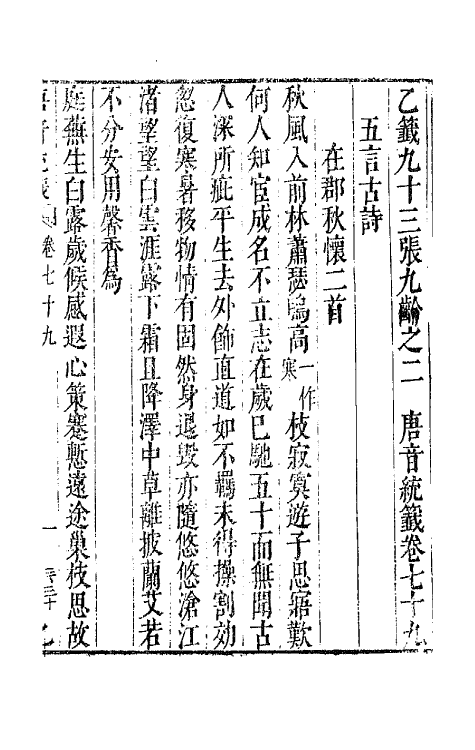 乙籤九十三張九齡之二　唐音統籤卷七十九
五言古詩
在郡秋懷二首
秋風入前林蕭瑟鳴高一作寒枝寂寞遊子思寤歎
何人知宦成名不立志在歲已馳五十而無聞古
人深所疵平生去外飾直道如不羈未得操割効
忽復寒暑移物情有固然身退毀亦隨悠悠滄江
渚望望白雲涯露下霜且降澤中草離披蘭艾若
不分安用馨香為
庭蕪生白露歲候感遐心策蹇慙遠途巢枝思故
卷七十九　一